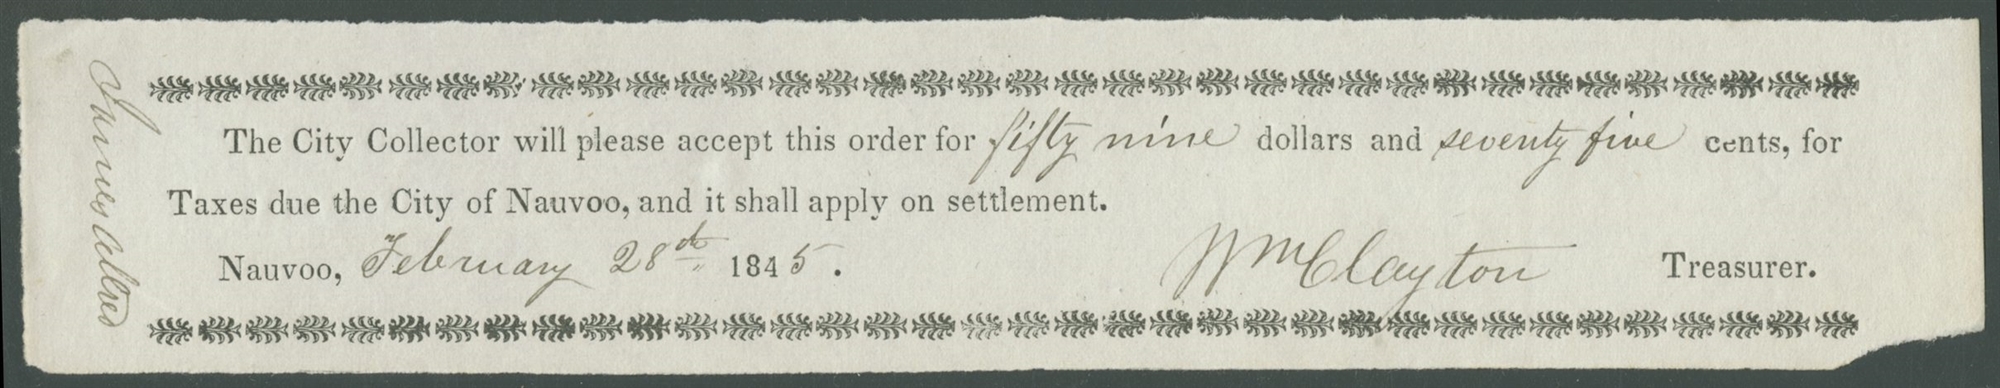 The City Collector will please accept this order for fifty nine dollars and seventy five cents, for
Taxes due the City of Nauvoo, and it shall apply on settlement.
Nauvoo, February 28th 1845. Wm Clayton Treasurer.
James Allred